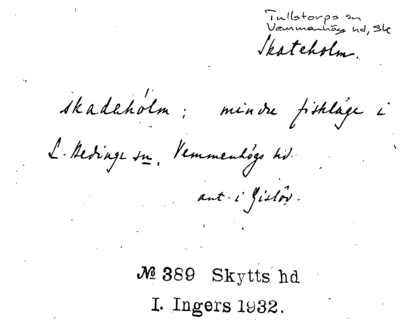 Tullstorps sn
Vemmenhögs hd, Sk
Skateholm.
skadehólm; mindre fiskläge i
L. Bedinge sn, Vemmenhögs hd.
ant. i Gislöv.
№ 389 Skytts hd
I. Ingers 1932.